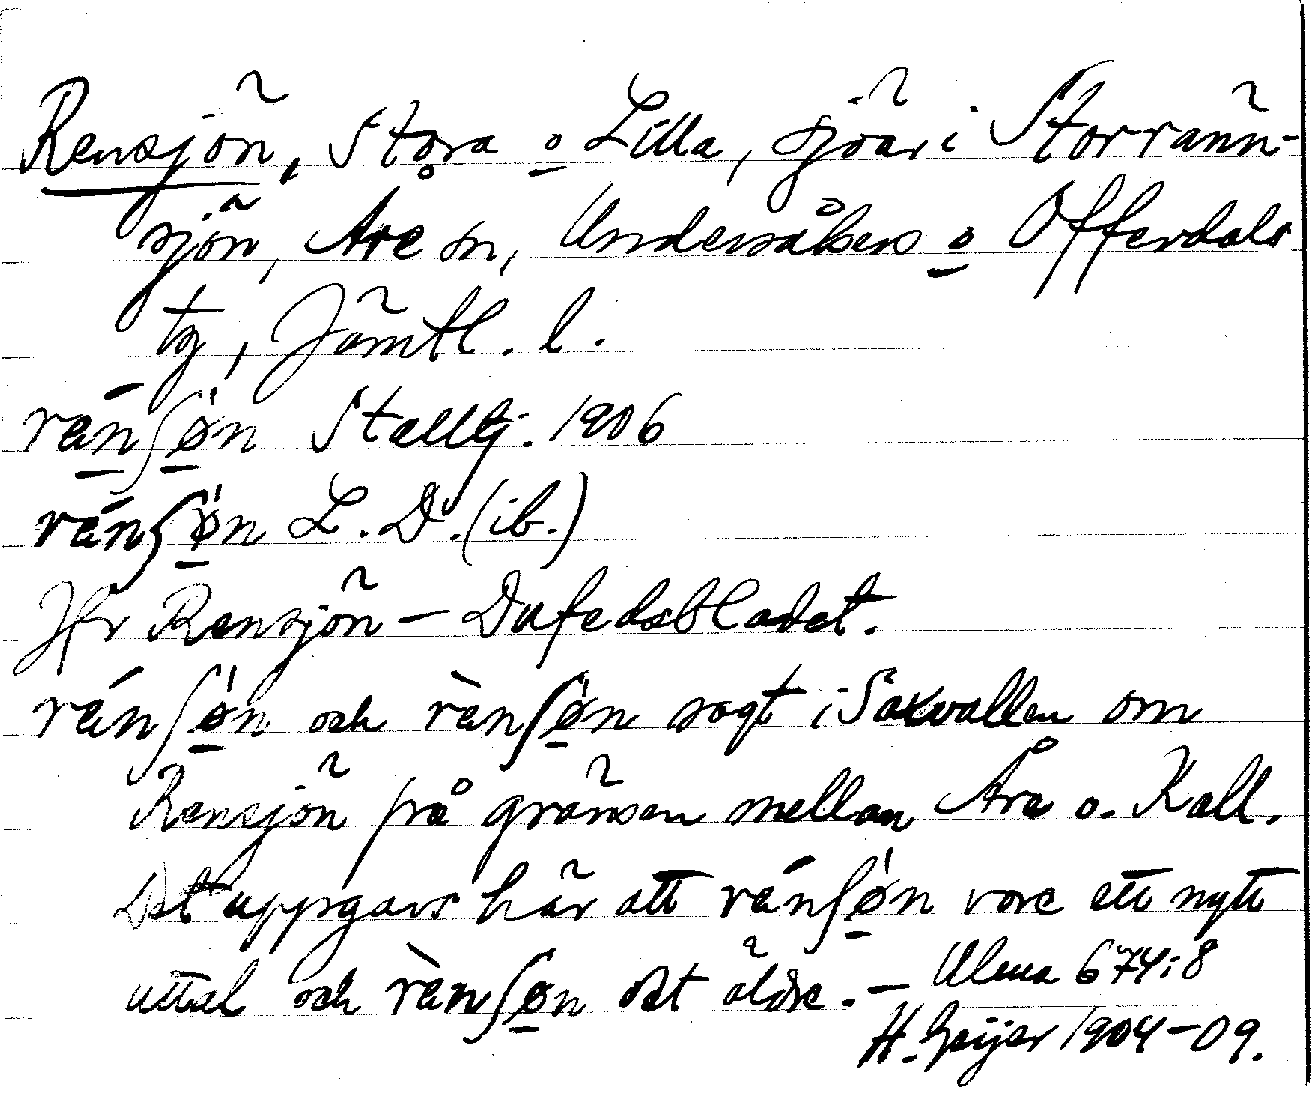 Rensjön, Stora o Lilla, sjöar i Storränn-
sjön, Åre sn, Undersåkers o Offerdals
tg, Jämtl. l.
ránʃø̱n Stalltj. 1906
ránʃø̱n L. D. (ib.)
Jfr Rensjön – Dufedsbladet.
ránʃø̱n och rànʃø̱n sagt i Saxvallen om
Rensjön på gränsen mellan Åre o. Kall.
Det uppgavs här att ránʃø̱n vore ett nytt
uttal och rànʃø̱n det äldre. – Ulma 674:8
H. Geijer 1904–09.